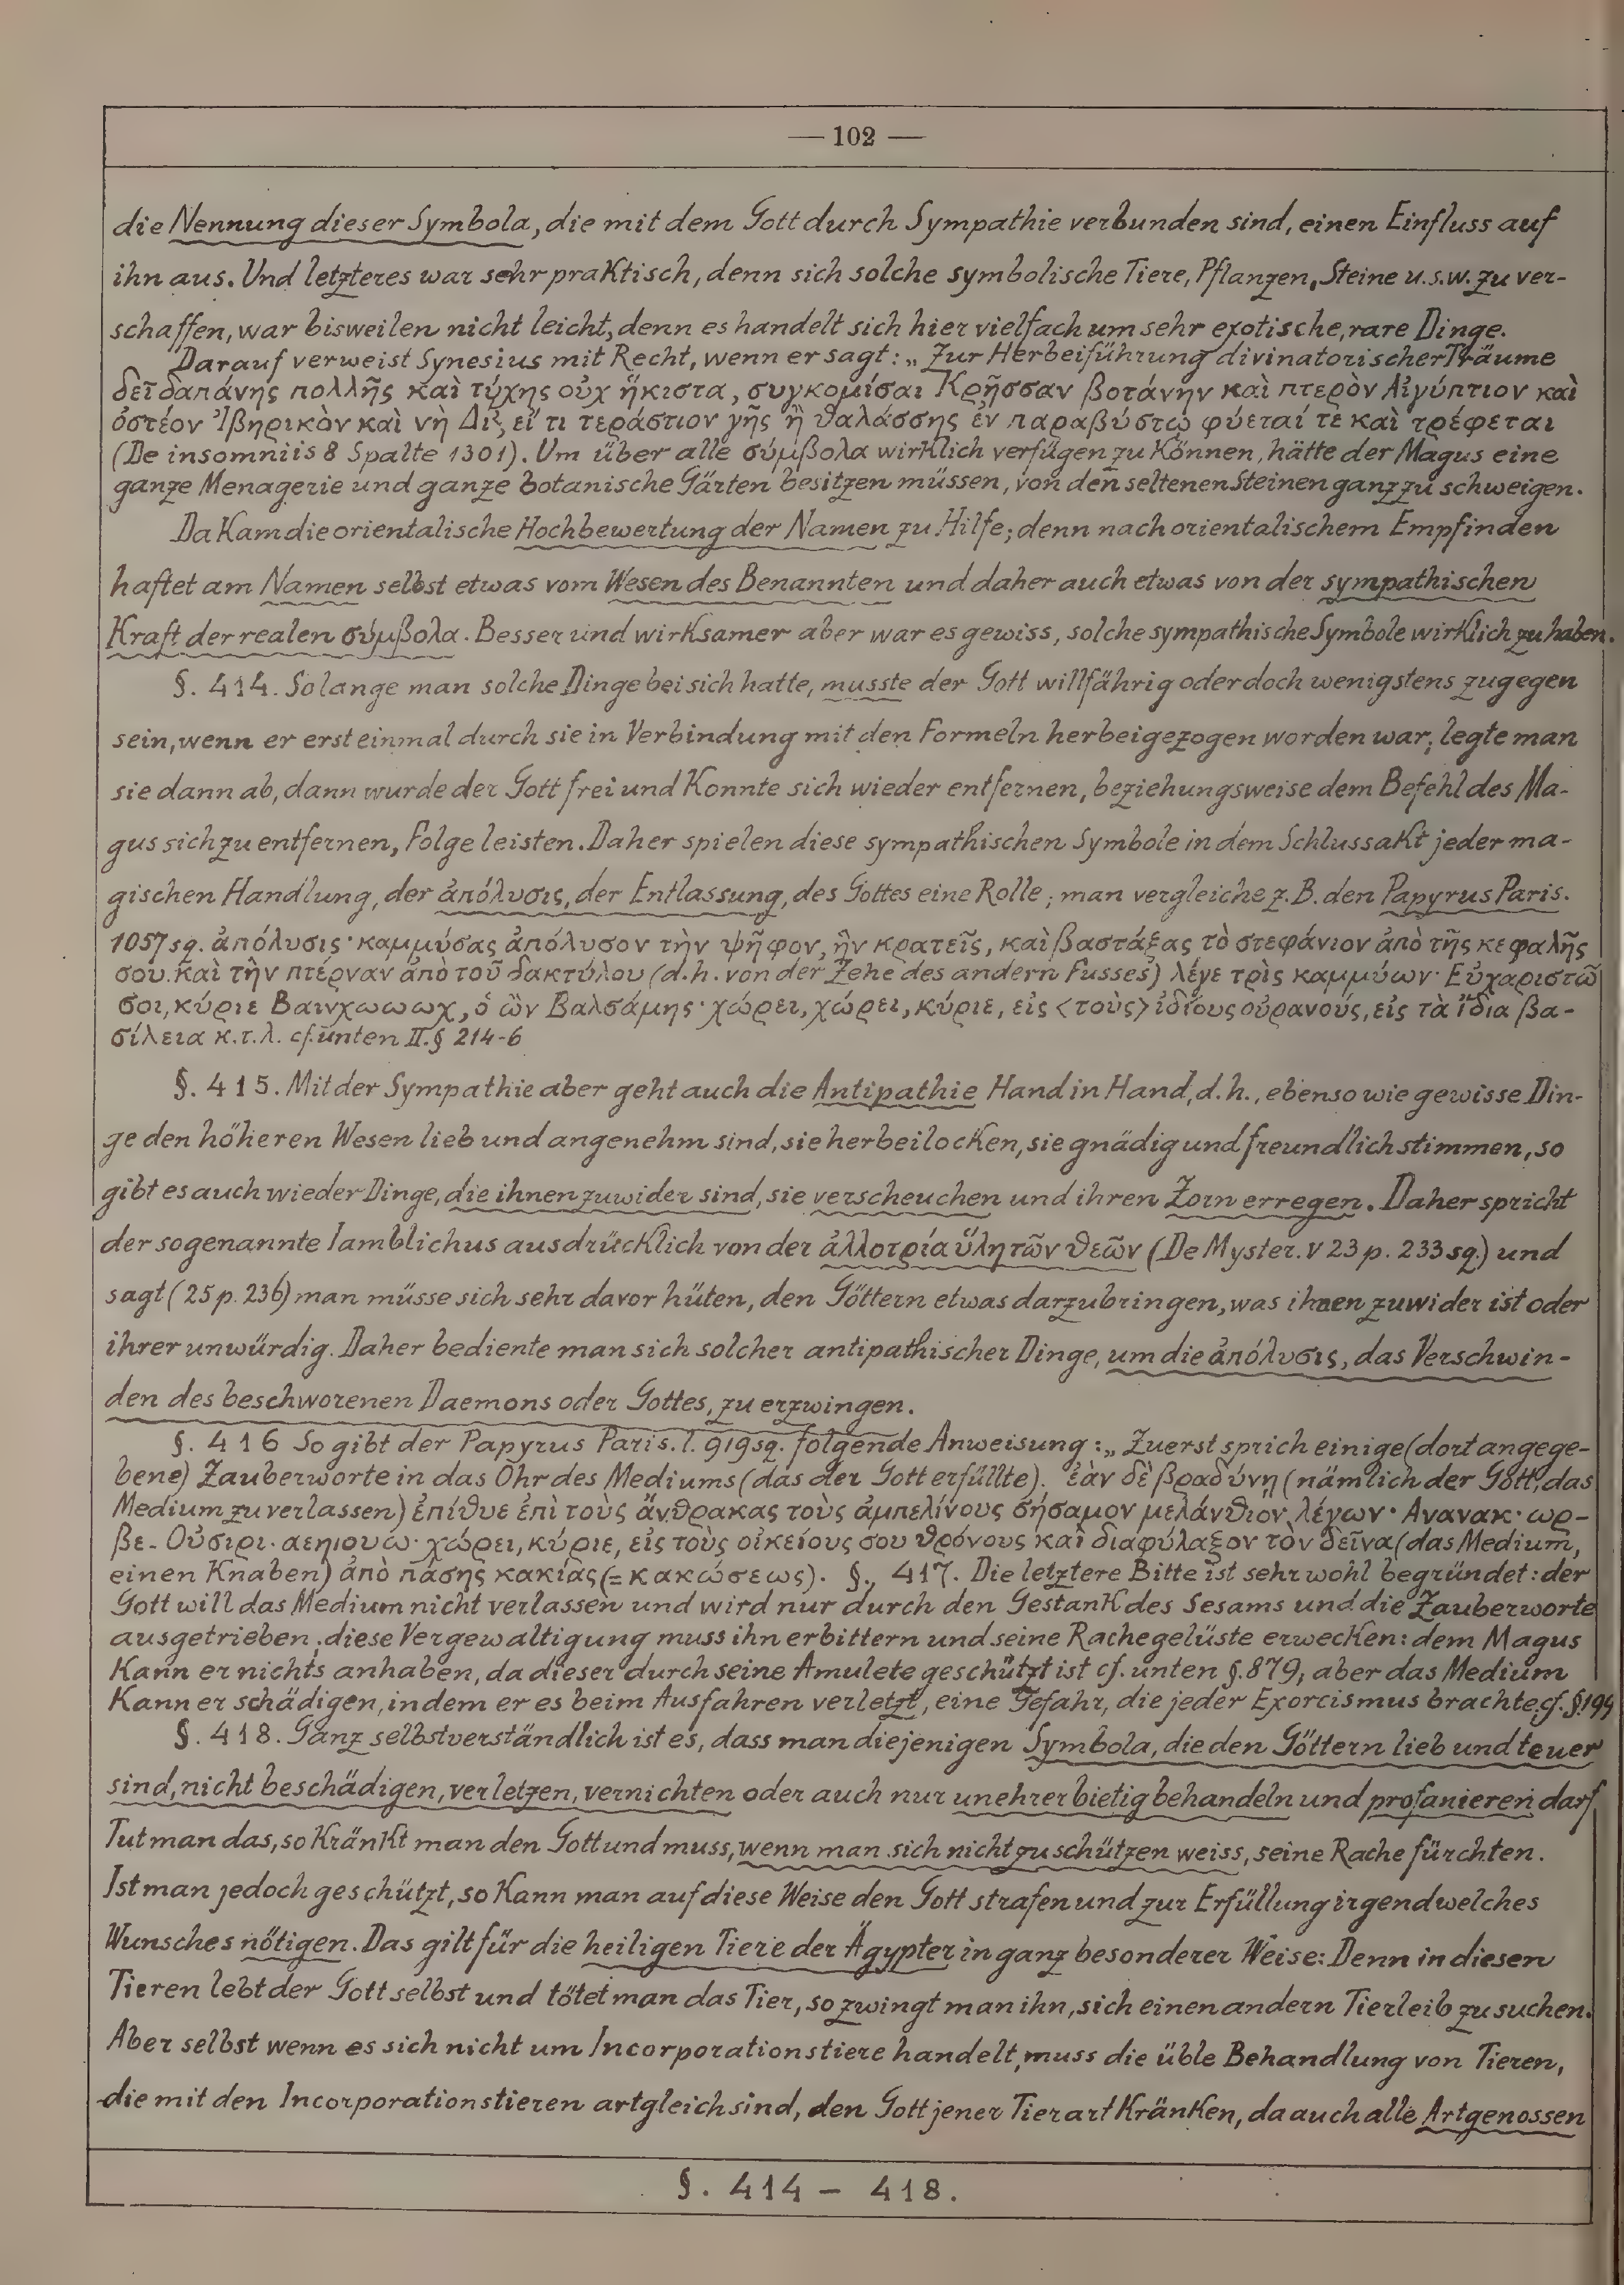 — 102 —
die Nennung dieser Symbola, die mit dem Gott durch Sympathie verbunden sind, einen Einfluss auf
ihn aus. Und letzteres war sehr praktisch, denn sich solche symbolische Tiere, Pflanzen, Steine u.s.w. zu ver-
schaffen, war bisweilen nicht leicht, denn es handelt sich hier vielfach um sehr exotische, rare Dinge.
Darauf verweist Synesius mit Recht, wenn er sagt: „Zur Herbeiführung divinatorischer Träume
δεῖ δαπάνης πολλῆς καὶ τύχης οὐχ ἥκιστα, συγκομίσαι Κρῆσσαν βοτάνην καὶ πτερὸν Αἰγύπτιον καὶ
ὀστέον Ἰβηρικὸν καὶ νὴ Δί, εἴ τι τεράστιον γῆς ἢ θαλάσσης ἐν παραβύστῳ φύεταί τε καὶ τρέφεται
(De insomniis 8 Spalte 1301). Um über alle σύμβολα wirklich verfügen zu können, hätte der Magus eine
ganze Menagerie und ganze botanische Gärten besitzen müssen, von den seltenen Steinen ganz zu schweigen.
Da kam die orientalische Hochbewertung der Namen zu Hilfe; denn nach orientalischem Empfinden
haftet am Namen selbst etwas vom Wesen des Benannten und daher auch etwas von der sympathischen
Kraft der realen σύμβολα. Besser und wirksamer aber war es gewiss, solche sympathische Symbole wirklich zu haben.
§. 414. Solange man solche Dinge bei sich hatte, musste der Gott willfährig oder doch wenigstens zugegen
sein, wenn er erst einmal durch sie in Verbindung mit den Formeln herbeigezogen worden war; legte man
sie dann ab, dann wurde der Gott frei und konnte sich wieder entfernen, beziehungsweise dem Befehl des Ma-
gus sich zu entfernen, Folge leisten. Daher spielen diese sympathischen Symbole in dem Schlussakt jeder ma-
gischen Handlung, der ἀπόλυσις, der Entlassung, des Gottes eine Rolle; man vergleiche z.B. den Papyrus Paris.
1057 sq. ἀπόλυσις· καμμύσας ἀπόλυσον τὴν ψῆφον, ἣν κρατεῖς, καὶ βαστάξας τὸ στεφάνιον ἀπὸ τῆς κεφαλῆς
σου. καὶ τὴν πτέρναν ἀπὸ τοῦ δακτύλου (d.h. von der Zehe des andern Fusses) λέγε τρὶς καμμύων· Εὐχαριστῶ
σοι, κύριε Βαινχωωωχ, ὁ ὢν Βαλσάμης· χώρει, χώρει, κύριε, εἰς <τοὺς> ἰδίους οὐρανούς, εἰς τὰ ἴδια βα-
σίλεια κ.τ.λ. cf. unten II. § 214-6
§. 415. Mit der Sympathie aber geht auch die Antipathie Hand in Hand, d.h., ebenso wie gewisse Din-
ge den höheren Wesen lieb und angenehm sind, sie herbeilocken, sie gnädig und freundlich stimmen, so
gibt es auch wieder Dinge, die ihnen zuwider sind, sie verscheuchen und ihren Zorn erregen. Daher spricht
der sogenannte Iamblichus ausdrücklich von der ἀλλοτρία ὕλη τῶν θεῶν (De Myster. V 23 p. 233 sq.) und
sagt (25 p. 236) man müsse sich sehr davor hüten, den Göttern etwas darzubringen, was ihnen zuwider ist oder
ihrer unwürdig. Daher bediente man sich solcher antipathischer Dinge, um die ἀπόλυσις, das Verschwin-
den des beschworenen Daemons oder Gottes, zu erzwingen.
§. 416 So gibt der Papyrus Paris. l. 919 sq. folgende Anweisung: „Zuerst sprich einige (dort angege-
bene) Zauberworte in das Ohr des Mediums (das der Gott erfüllte). ἐὰν δὲ βραδύνῃ (nämlich der Gott, das
Medium zu verlassen) ἐπίθυε ἐπὶ τοὺς ἄνθρακας τοὺς ἀμπελίνους σήσαμον μελάνθιον, λέγων· Ανανακ· ωρ-
βε- Οὐσιρι· αεηιουω· χώρει, κύριε, εἰς τοὺς οἰκείους σου θρόνους καὶ διαφύλαξον τὸν δεῖνα (das Medium,
einen Knaben) ἀπὸ πάσης κακίας (= κακώσεως). §. 417. Die letztere Bitte ist sehr wohl begründet: der
Gott will das Medium nicht verlassen und wird nur durch den Gestank des Sesams und die Zauberworte
ausgetrieben; diese Vergewaltigung muss ihn erbittern und seine Rachegelüste erwecken: dem Magus
kann er nichts anhaben, da dieser durch seine Amulete geschützt ist cf. unten §. 879, aber das Medium
kann er schädigen, indem er es beim Ausfahren verletzt, eine Gefahr, die jeder Exorcismus brachte. cf. §. 194
§. 418. Ganz selbstverständlich ist es, dass man diejenigen Symbola, die den Göttern lieb und teuer
sind, nicht beschädigen, verletzen, vernichten oder auch nur unehrerbietig behandeln und profanieren darf
Tut man das, so kränkt man den Gott und muss, wenn man sich nicht zu schützen weiss, seine Rache fürchten.
Ist man jedoch geschützt, so kann man auf diese Weise den Gott strafen und zur Erfüllung irgendwelches
Wunsches nötigen. Das gilt für die heiligen Tiere der Ägypter in ganz besonderer Weise: Denn in diesen
Tieren lebt der Gott selbst und tötet man das Tier, so zwingt man ihn, sich einen andern Tierleib zu suchen.
Aber selbst wenn es sich nicht um Incorporationstiere handelt, muss die üble Behandlung von Tieren,
die mit den Incorporationstieren artgleich sind, den Gott jener Tierart kränken, da auch alle Artgenossen
§. 414 – 418.